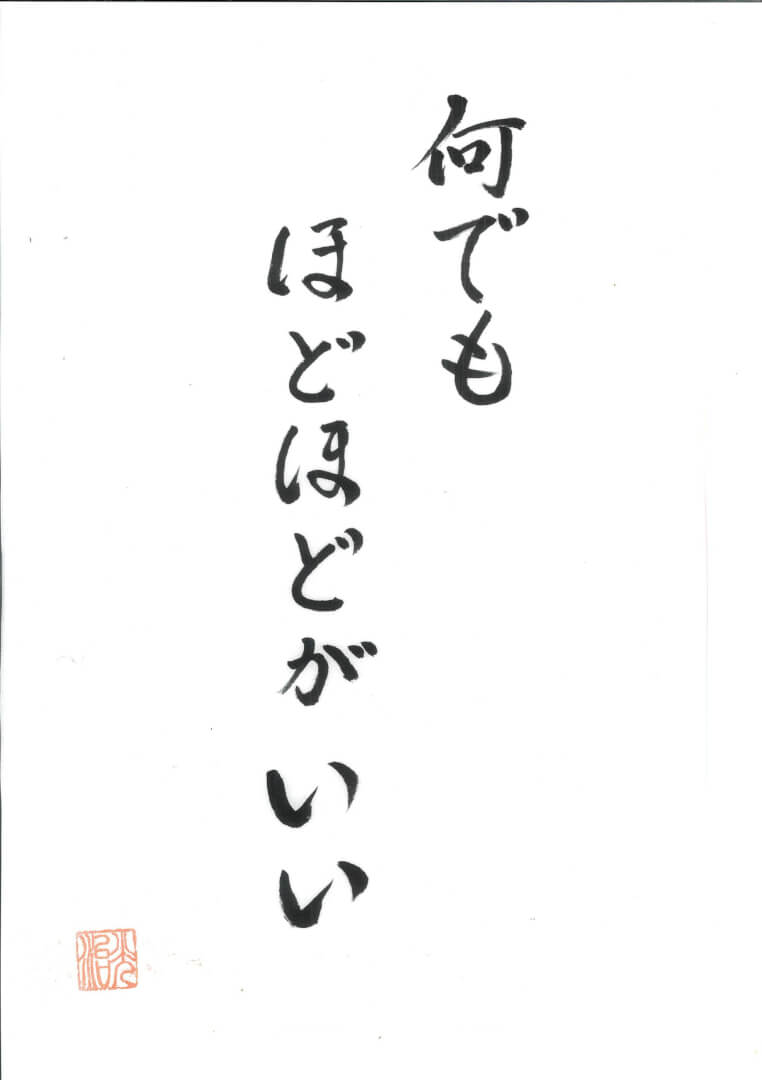 何でも
ほどほどがいい